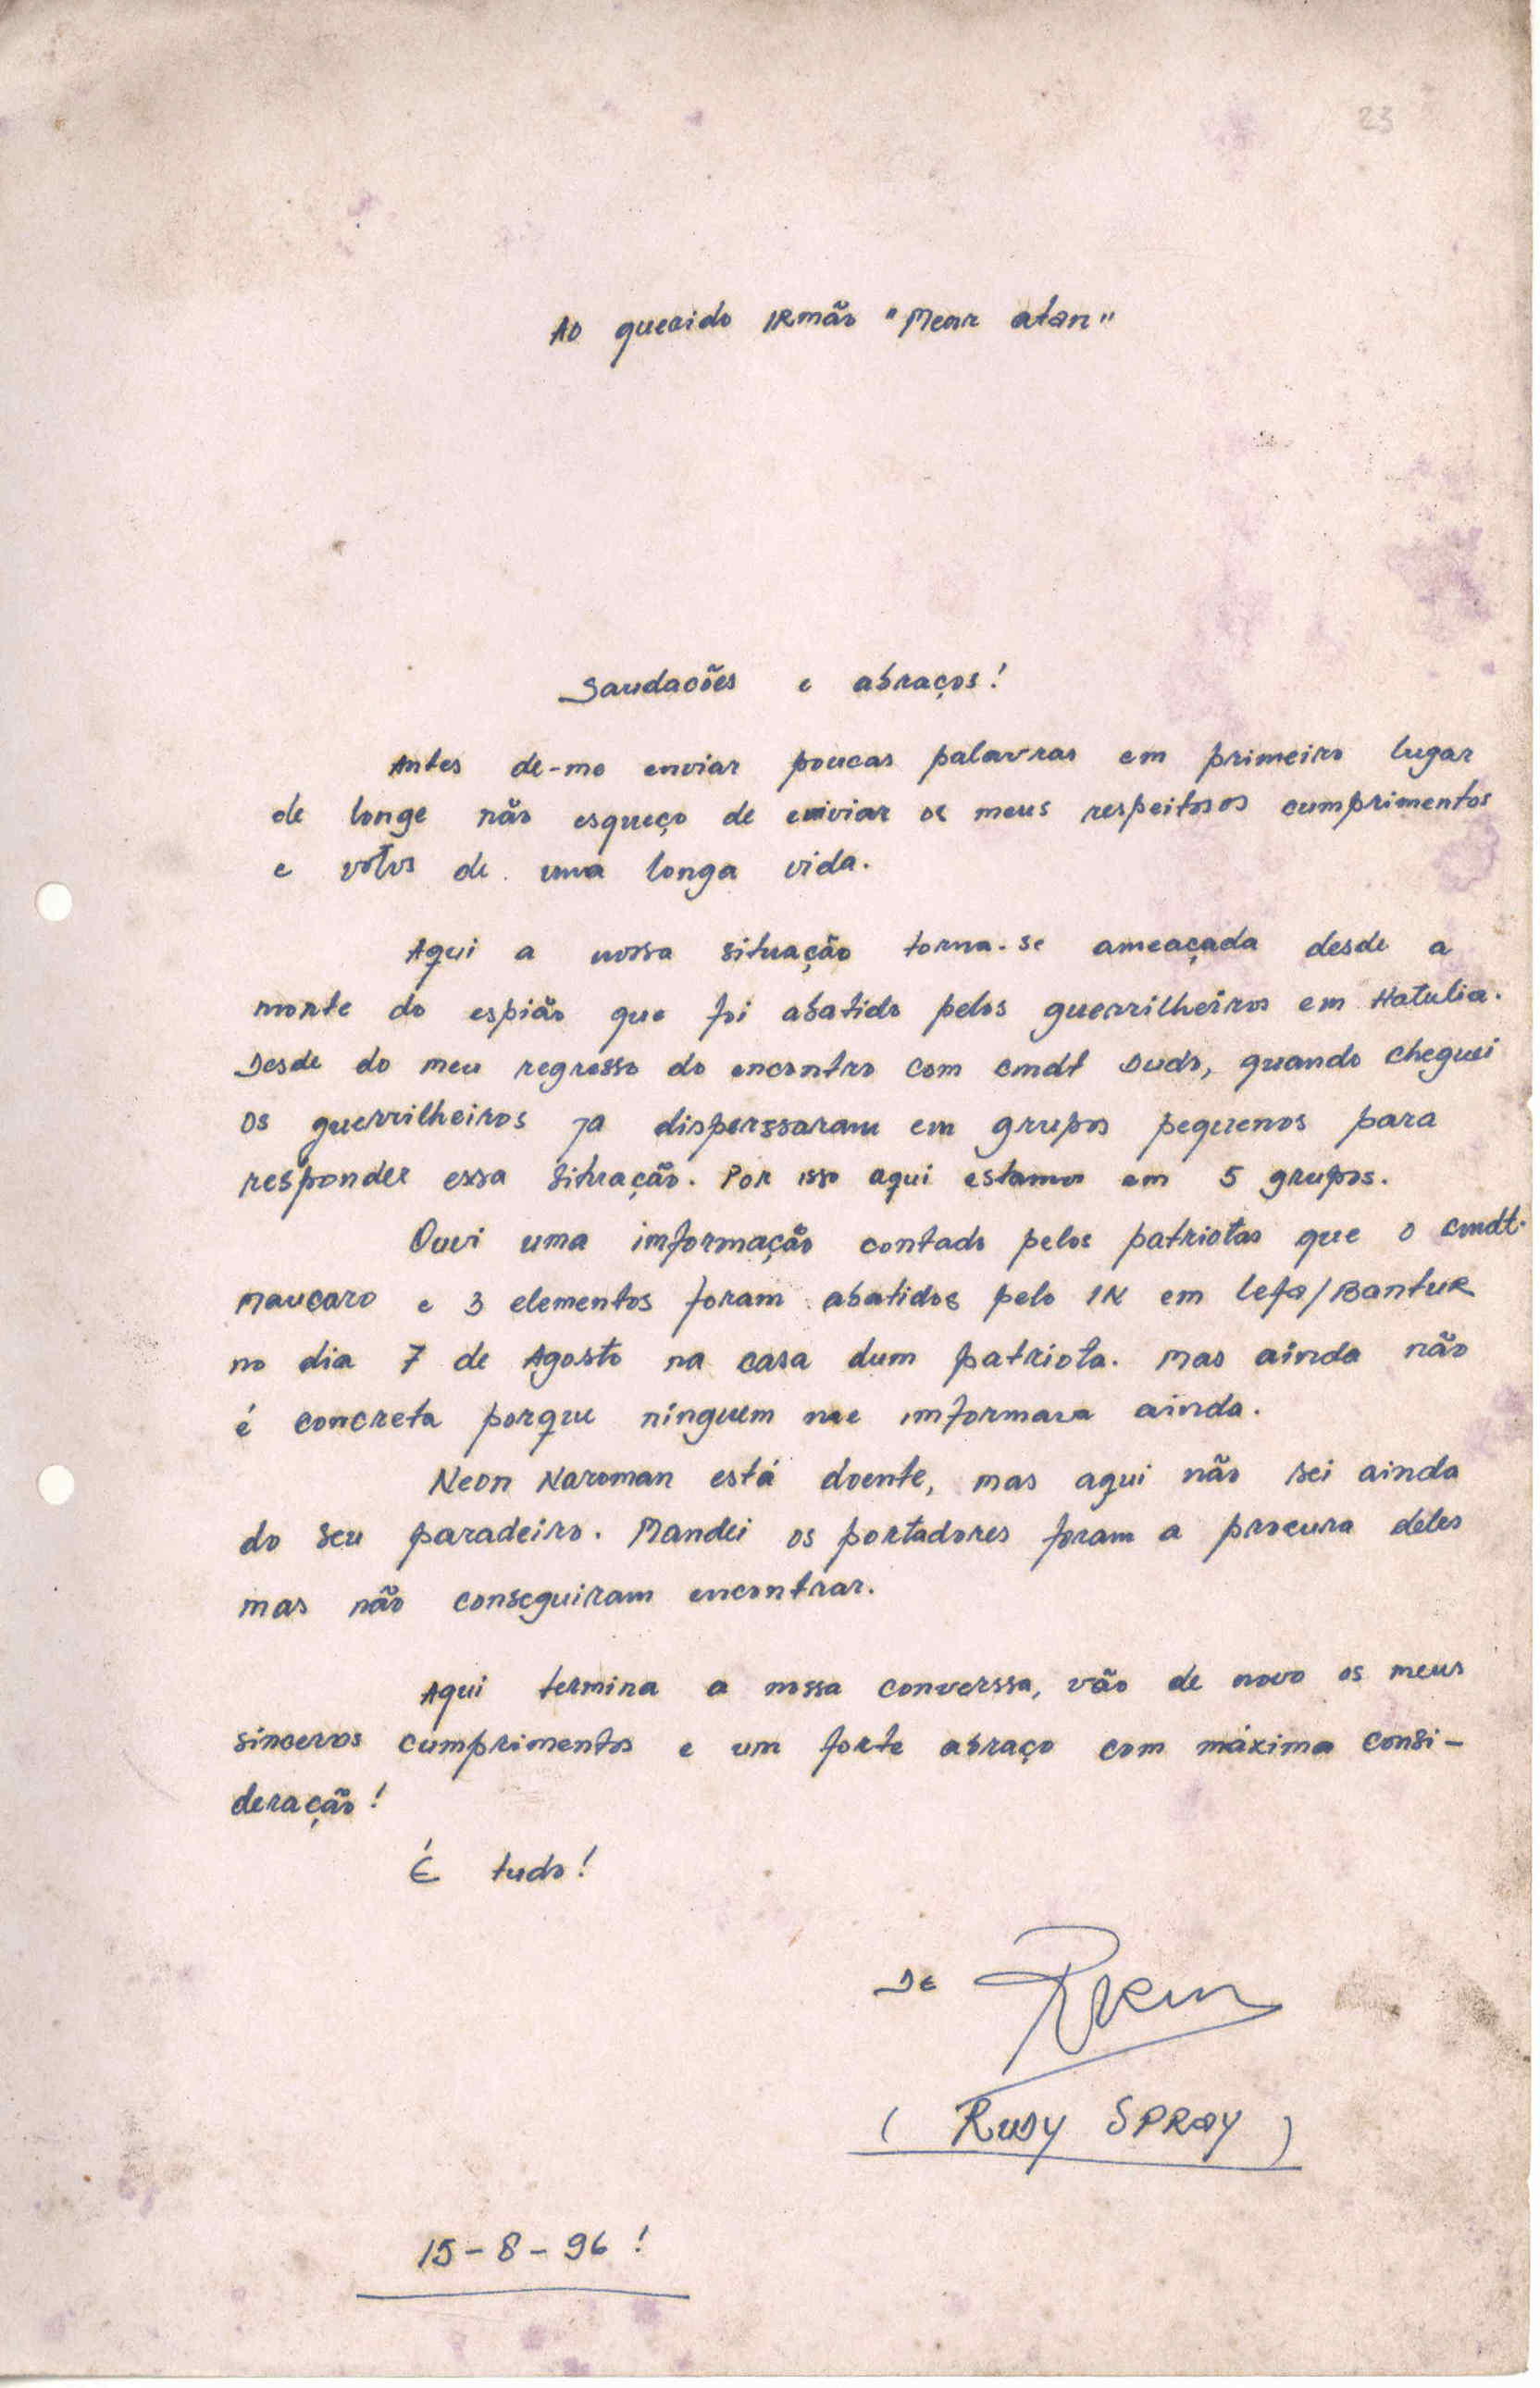 23
Ao querido IRmão "Mear atan"
Saudacões e abraços!
Antes de-mo enviar poucas palavras em primeiro lugar
de longe não esqueço de enviar os meus respeitosos cumprimentos
e votos de uma longa vida.
Aqui a nossa situação torna-se ameaçada desde a
morte do espião que foi abatido pelos guerrilheiros em Hatulia.
Desde do meu regresso do encontro com cmdt Dudo, quando cheguei
os guerrilheiros ja disperssaram em grupos pequenos para
responder essa situação. Por isso aqui estamos em 5 grupos.
Ouvi uma imformação contado pelos patriotas que o cmdt.
Maucaro e 3 elementos foram abatidos pelo IN em lefo/Bantur
no dia 7 de Agosto na casa dum patriota. Mas ainda não
é concreta porque ninguem me imformara ainda.
Neon Naroman está doente, mas aqui não sei ainda
do seu paradeiro. Mandei os portadores foram a procura deles
mas não conseguiram encontrar.
Aqui termina a nossa converssa, vão de novo os meus
sinceros cumprimentos e um forte abraço com máxima consi-
deração!
É tudo!
De
( Rudy SPRAY )
15-8-96!